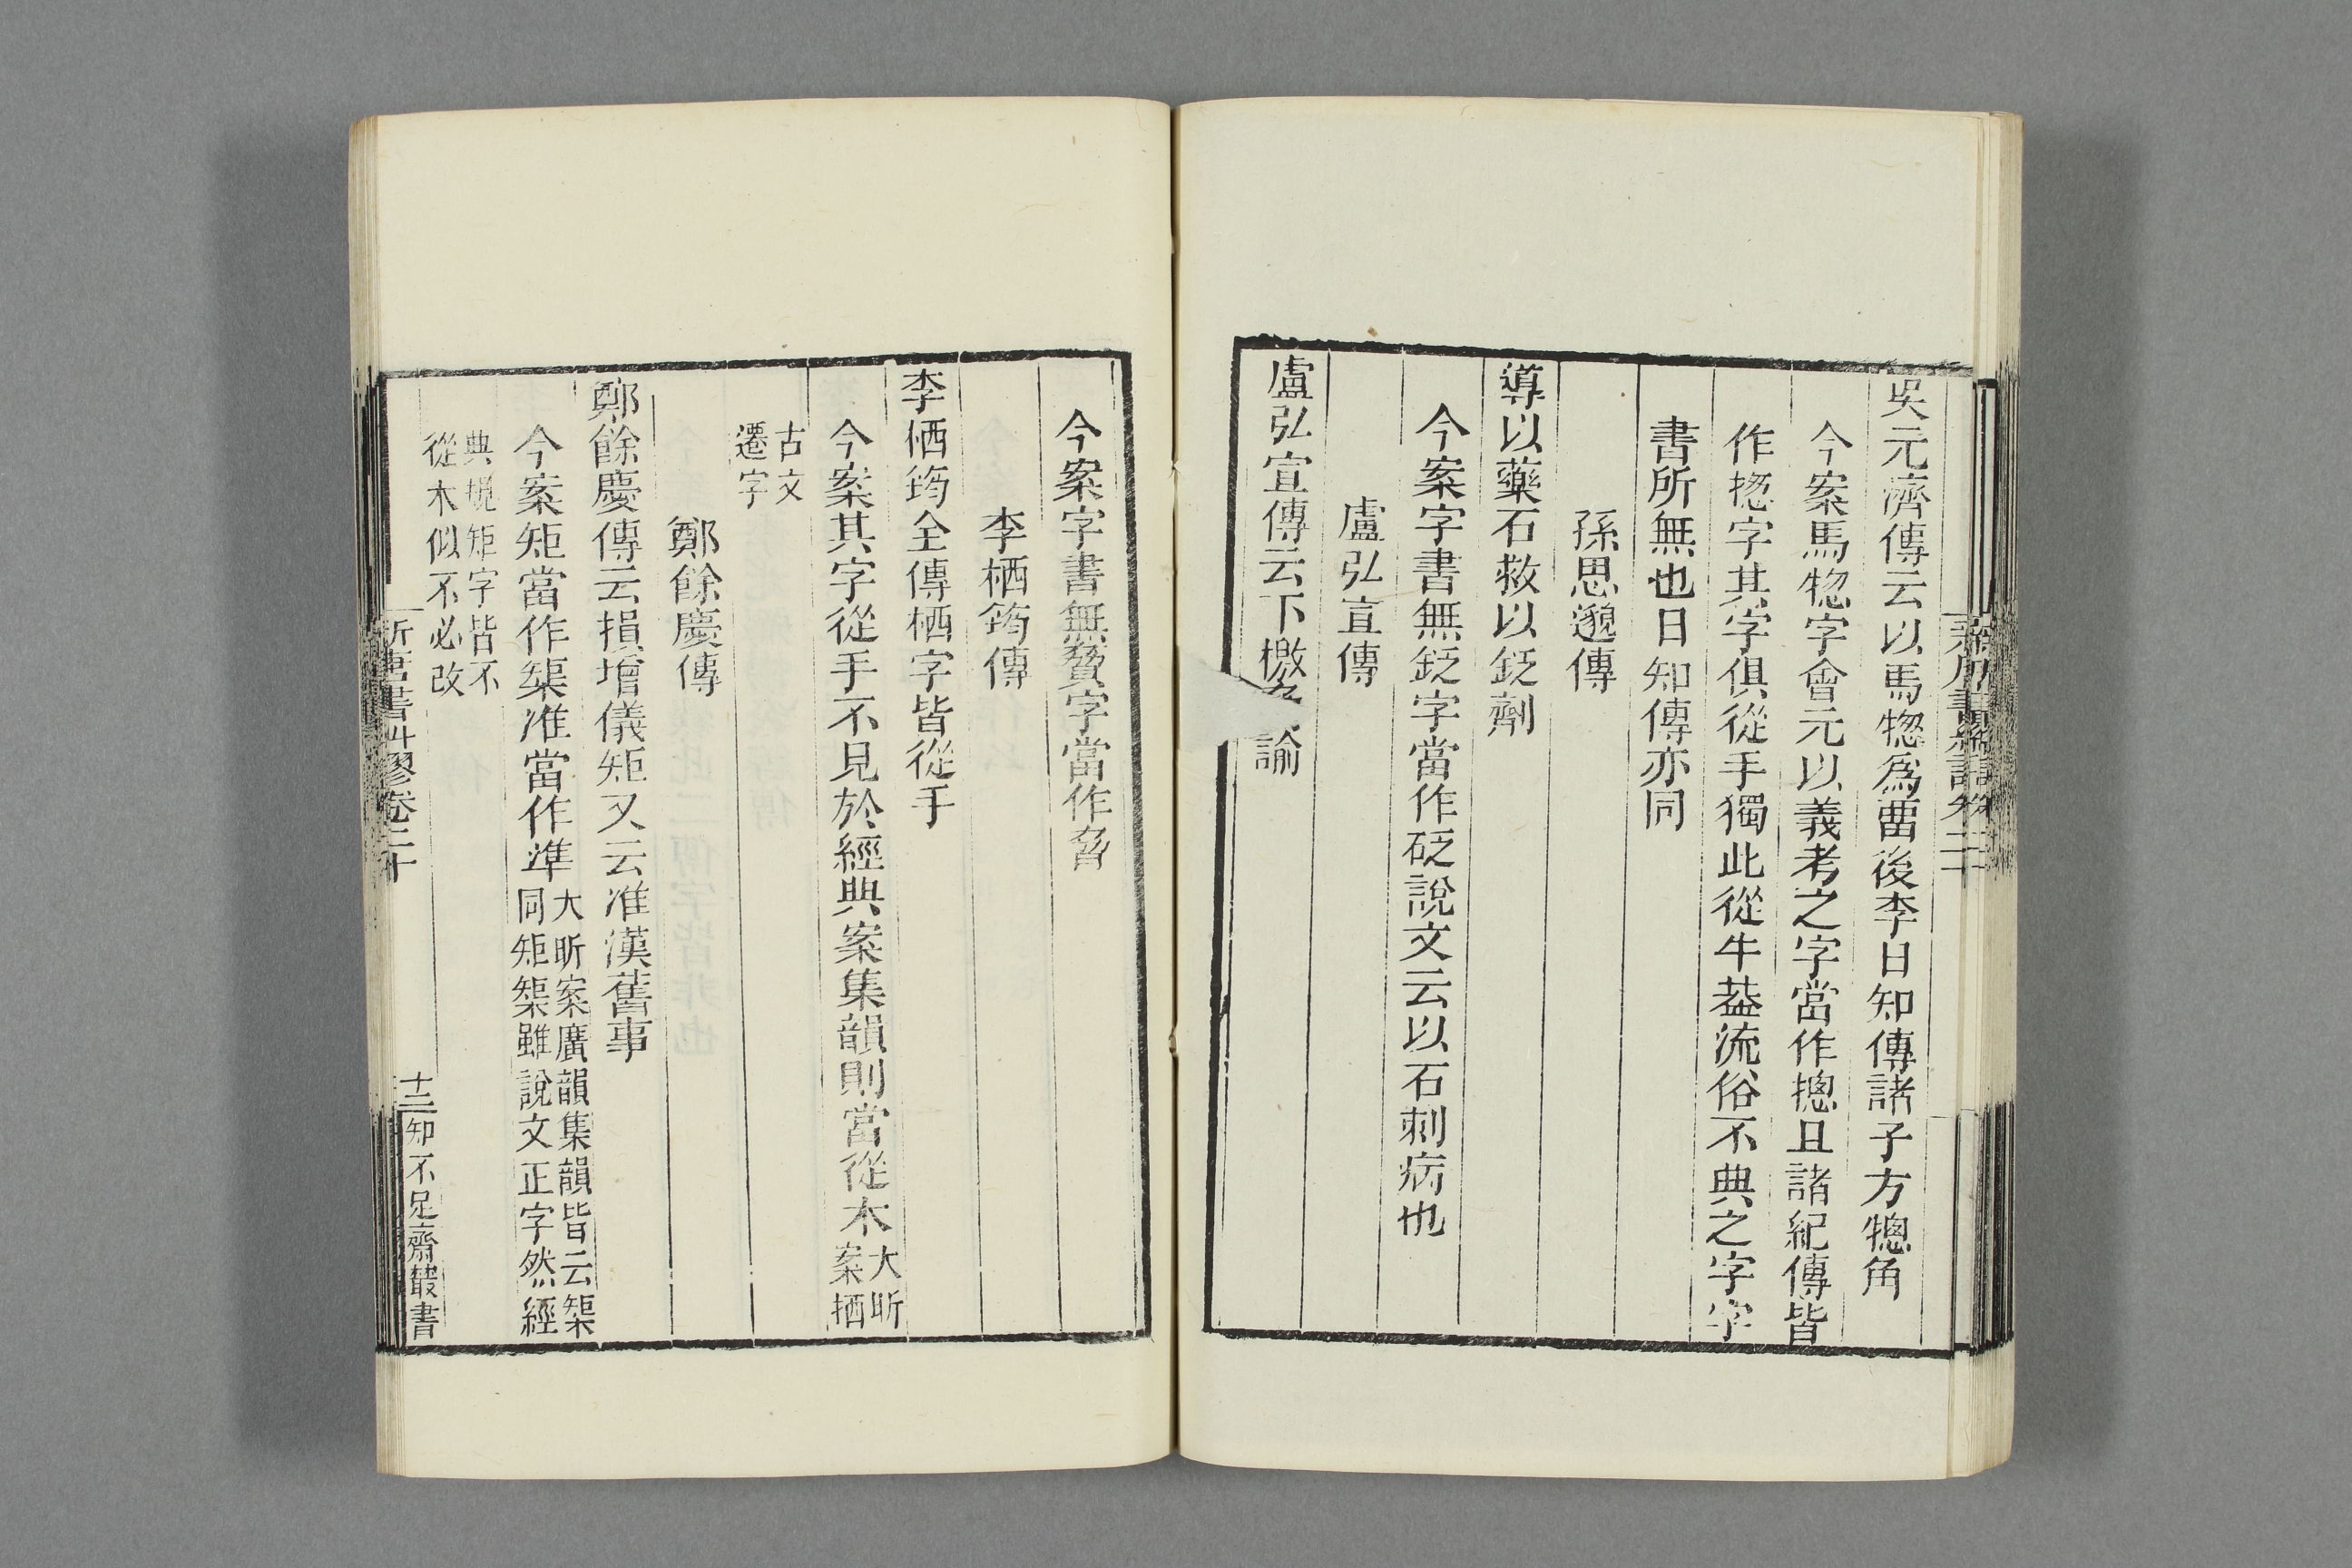 吳元濟傳云以馬㹅爲畱後李日知傳諸子方𤛇角
今案馬㹅字會元以義考之字當作摠且諸紀傳皆
作揔字其字俱從手獨此從牛葢流俗不典之字字
書所無也日知傳亦同
孫思邈傳
導以藥石救以鈠劑
今案字書無鈠字當作砭說文云以石刺病也
盧弘宣傳
盧弘宣傳云下檄 諭
今案字書無贅字當作脅
李栖筠傳
李栖筠全傳栖字皆從手
今案其字從手不見於經典案集韻則當從木大昕
案捿
古文
遷字
鄭餘慶傳
鄭餘慶傳云損增儀矩又云准漢舊事
今案矩當作榘准當作準大昕案廣韻集韻皆云榘
同矩榘雖說文正字然經
典規矩字皆不
從木似不必改
新唐書糾繆卷二十
十三
知不足齋叢書